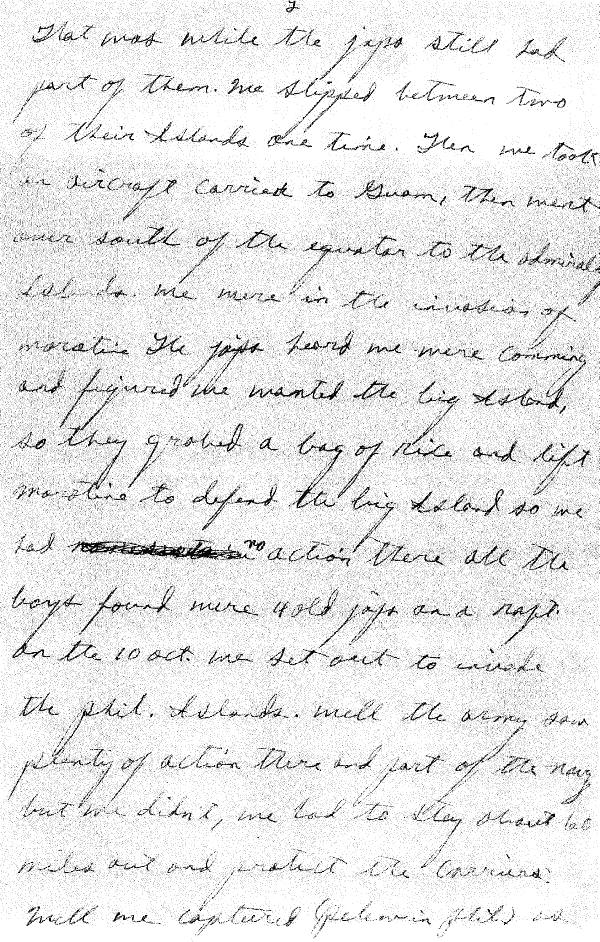 2
That was while the japs still had
part of them. We slipped between two
of their Islands one time. Then we took
an aircraft carried to Guam, then went
over south of the equator to the admiralty
Islands. We were in the invasion of
moratine The japs heard we were comming
and figured we wanted the big Island,
so they grabed a bag of rice and lift
moratine to defend the big Island so we
had no action there all the
boys found were 4 old japs on a raft.
on the 10 oct. we set out to invade
the phil. Islands. Well the army saw
plenty of action there and part of the navy
but we didn't, we had to stay about 60
miles out and protect the Carriers.
Well we captured in phil) as